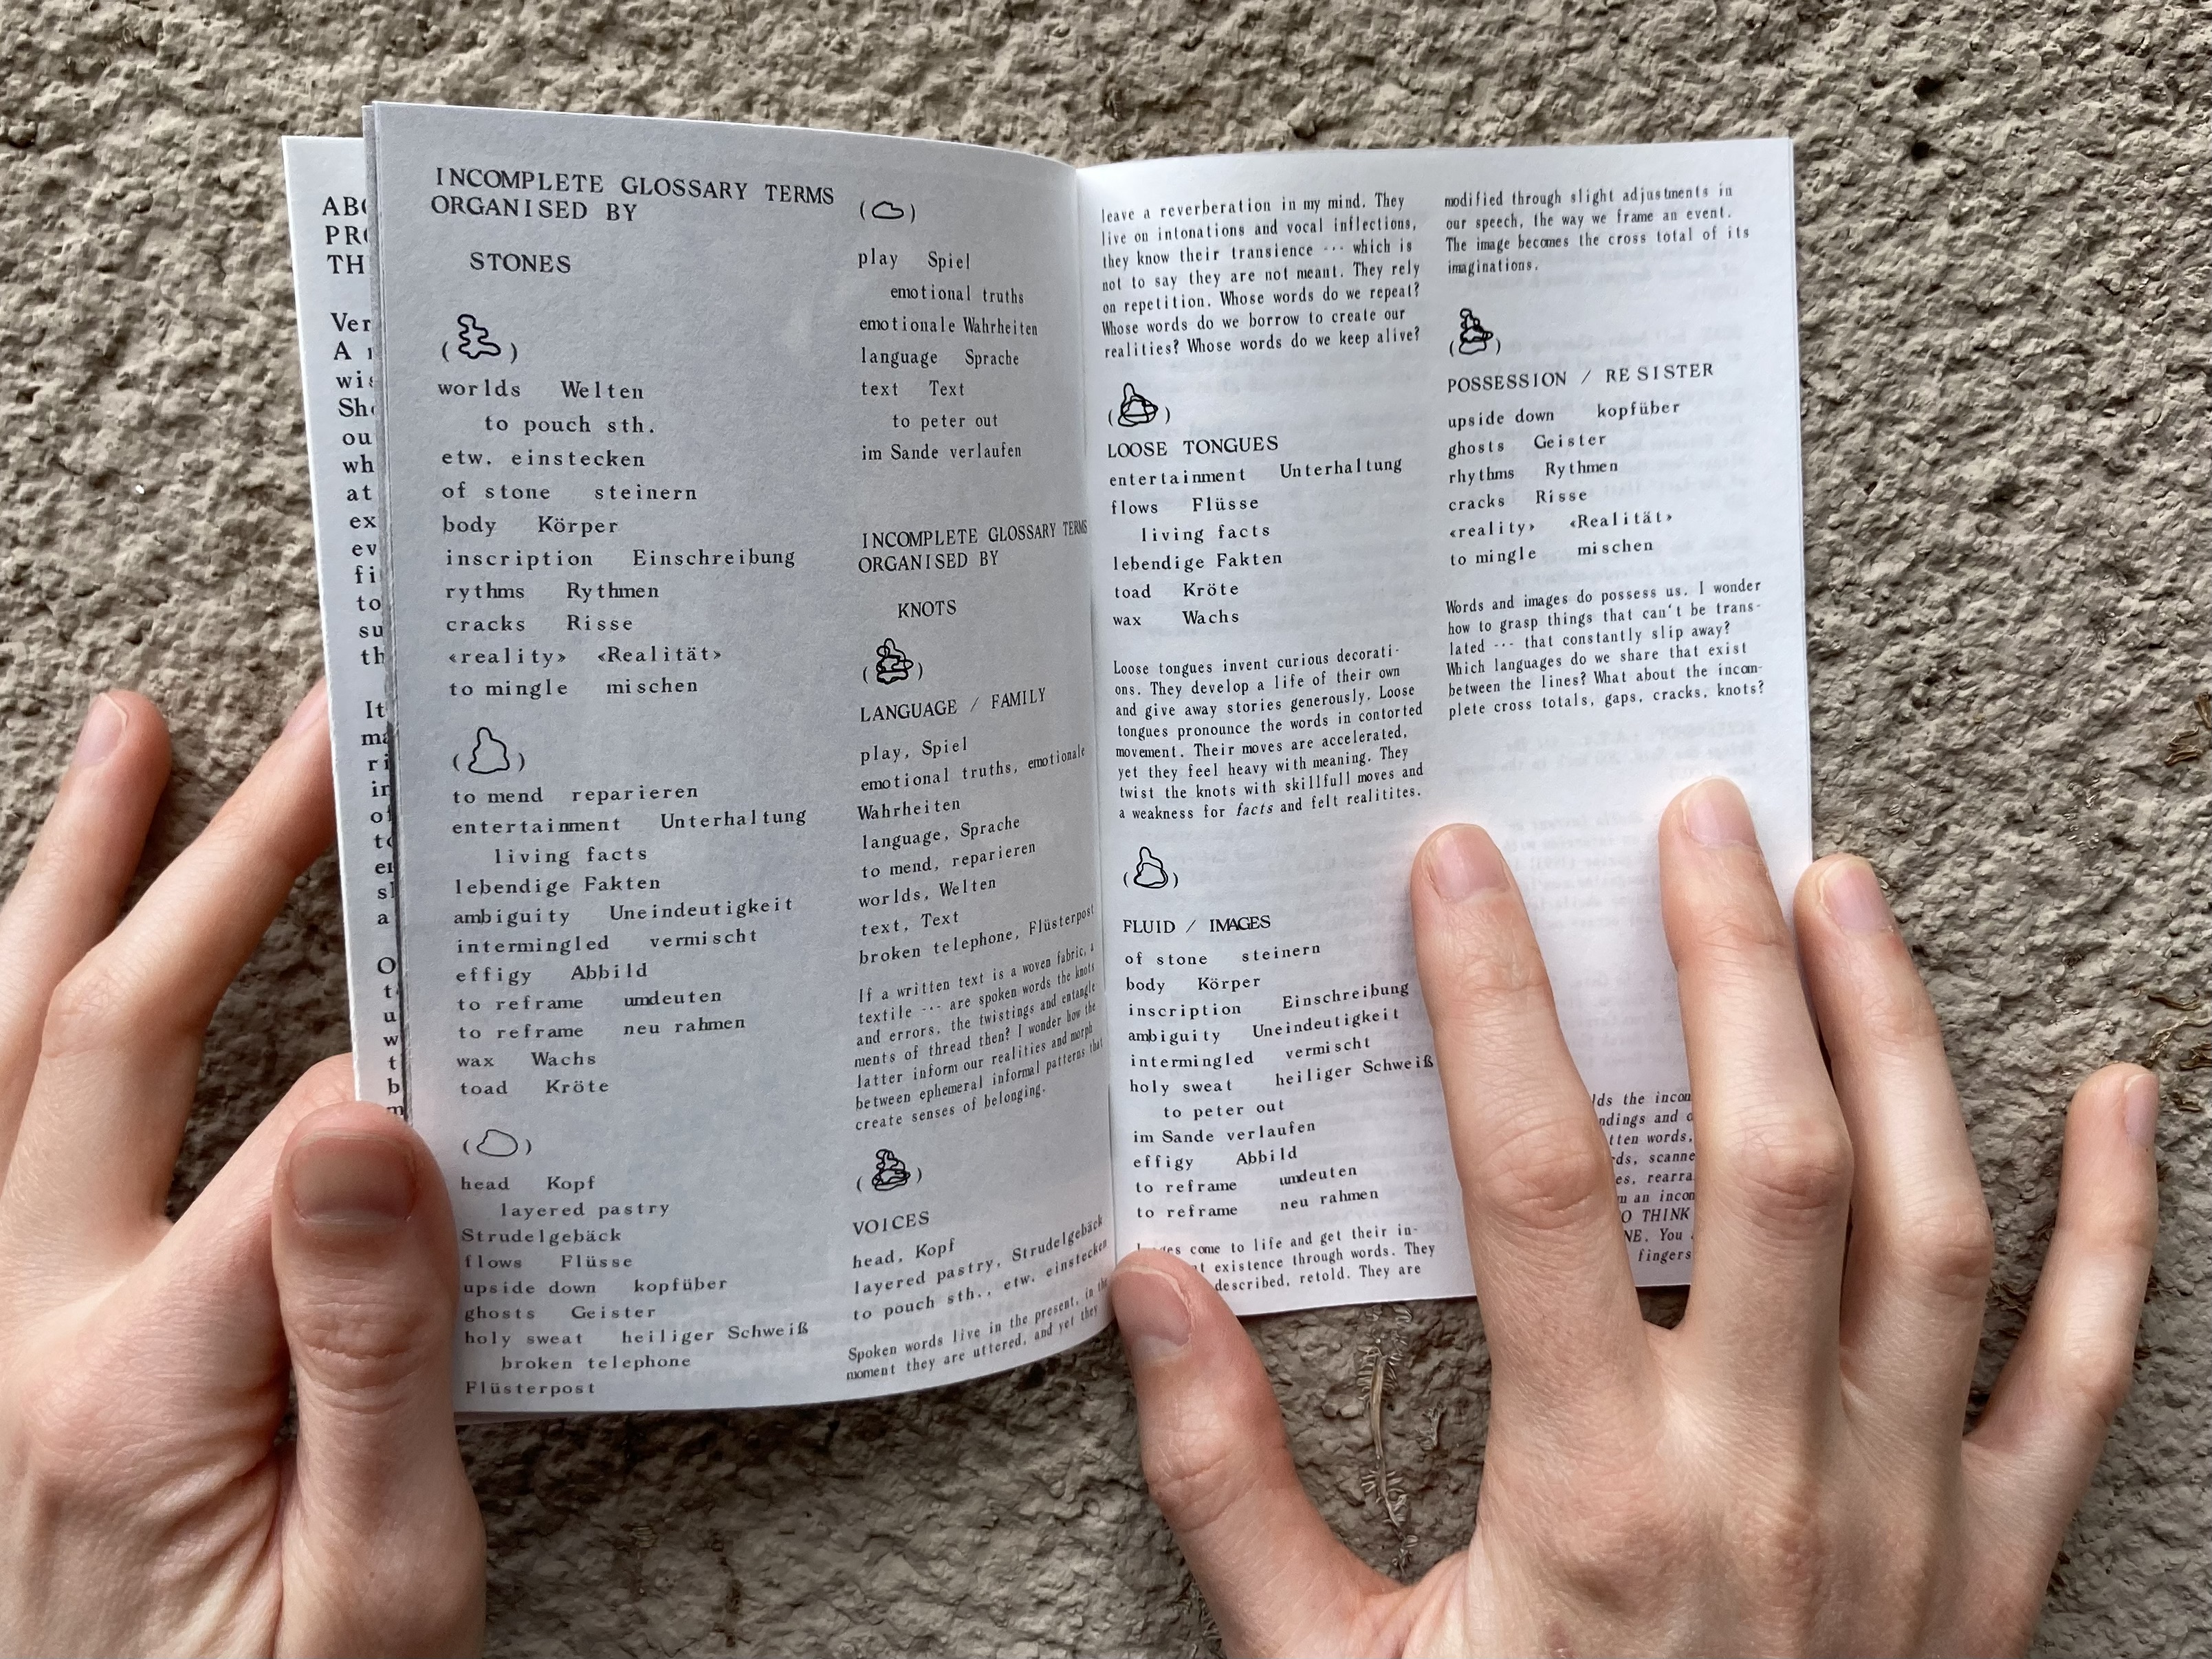 INCOMPLETE GLOSSARY TERMS
ORGANISED BY
STONES
worlds Welten
to pouch sth.
etw. einstecken
of stone steinern
body Körper
inscription Einschreibung
rythms Rythmen
cracks Risse
‹reality› ‹Realität›
to mingle mischen
to mend reparieren
entertainment Unterhaltung
living facts
lebendige Fakten
ambiguity Uneindeutigkeit
intermingled vermischt
effigy Abbild
to reframe umdeuten
to reframe neu rahmen
wax Wachs
toad Kröte
head Kopf
layered pastry
Strudelgebäck
flows Flüsse
upside down kopfüber
ghosts Geister
holy sweat heiliger Schweiß
broken telephone
Flüsterpost
play Spiel
emotional truths
emotionale Wahrheiten
language Sprache
text Text
to peter out
im Sande verlaufen
INCOMPLETE GLOSSARY TERMS
ORGANISED BY
KNOTS
LANGUAGE / FAMILY
play, Spiel
emotional truths, emotionale
Wahrheiten
language, Sprache
to mend, reparieren
worlds, Welten
text, Text
broken telephone, Flüsterpost
If a written text is a woven fabric, a
textile --- are spoken words the knots
and errors, the twistings and entangle
ments of thread then? I wonder how the
latter inform our realities and morph
between ephemeral informal patterns that
create senses of belonging.
VOICES
head, Kopf
layered pastry, Strudelgebäck
to pouch sth., etw. einstecken
Spoken words live in the present, in the
moment they are uttered, and yet they
leave a reverberation in my mind. They
live on intonations and vocal inflections,
they know their transience --- which is
not to say they are not meant. They rely
on repetition. Whose words do we repeat?
Whose words do we borrow to create our
realities? Whose words do we keep alive?
LOOSE TONGUES
entertainment Unterhaltung
flows Flüsse
living facts
lebendige Fakten
toad Kröte
wax Wachs
Loose tongues invent curious decorati-
ons. They develop a life of their own
and give away stories generously. Loose
tongues pronounce the words in contorted
movement. Their moves are accelerated,
yet they feel heavy with meaning. They
twist the knots with skillfull moves and
a weakness for facts and felt realitites.
FLUID / IMAGES
of stone steinern
body Körper
inscription Einschreibung
ambiguity Uneindeutigkeit
intermingled vermischt
holy sweat heiliger Schweiß
to peter out
im Sande verlaufen
effigy Abbild
to reframe umdeuten
to reframe neu rahmen
come to life and get their in-
existence through words. They
described, retold. They are
modified through slight adjustments in
our speech, the way we frame an event.
The image becomes the cross total of its
imaginations.
POSSESSION / RESISTER
upside down kopfüber
ghosts Geister
rhythms Rythmen
cracks Risse
‹reality› ‹Realität›
to mingle mischen
Words and images do possess us. I wonder
how to grasp things that can't be trans-
lated --- that constantly slip away?
Which languages do we share that exist
between the lines? What about the incom-
plete cross totals, gaps, cracks, knots?
the incom
and
words,
scanne
rearra
an incom
THINK
You
fingers